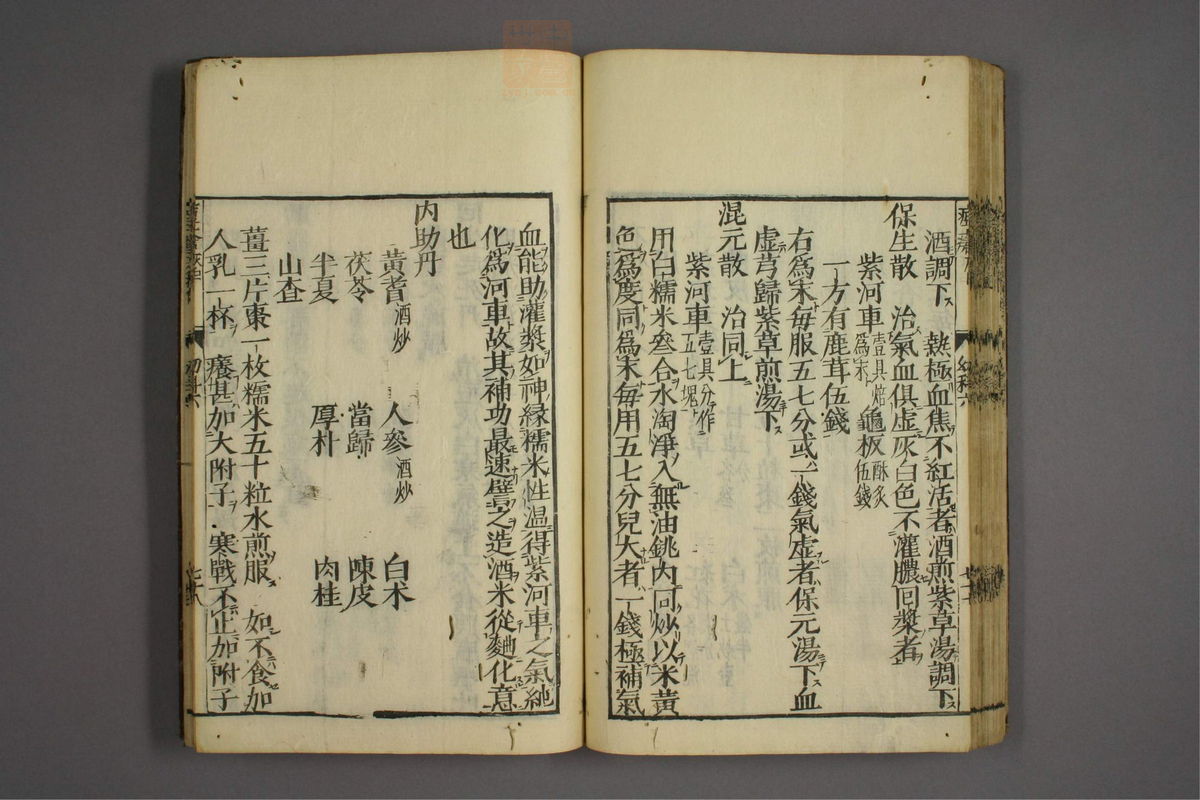 酒調下　熱極血焦不紅活者酒煎紫草湯調下
保生散　治氣血俱虛灰白色不灌膿囘漿者
紫河車壹具焙爲末　龜板酥炙伍錢
一方有鹿茸伍錢
右爲末毎服五七分或一錢氣虛者保元湯下血
虛芎歸紫草煎湯下
混元散　治同上
紫河車壹具分作五七塊
用白糯米叄合水淘淨入無油銚內同炒以米黃
色爲度同爲末毎用五七分兒大者一錢極補氣
血能助灌漿如神緣糯米性温得紫河車之氣純
化爲河車故其補功最速譬之造酒米從麯化意
也
内助丹
黃耆酒炒　人參酒炒　白朮
茯苓　當歸　陳皮
半夏　厚朴　肉桂
山查
薑三片棗一枚糯米五十粒水煎服　如不食加
人乳一杯　癢甚加大附子　寒戰不止加附子